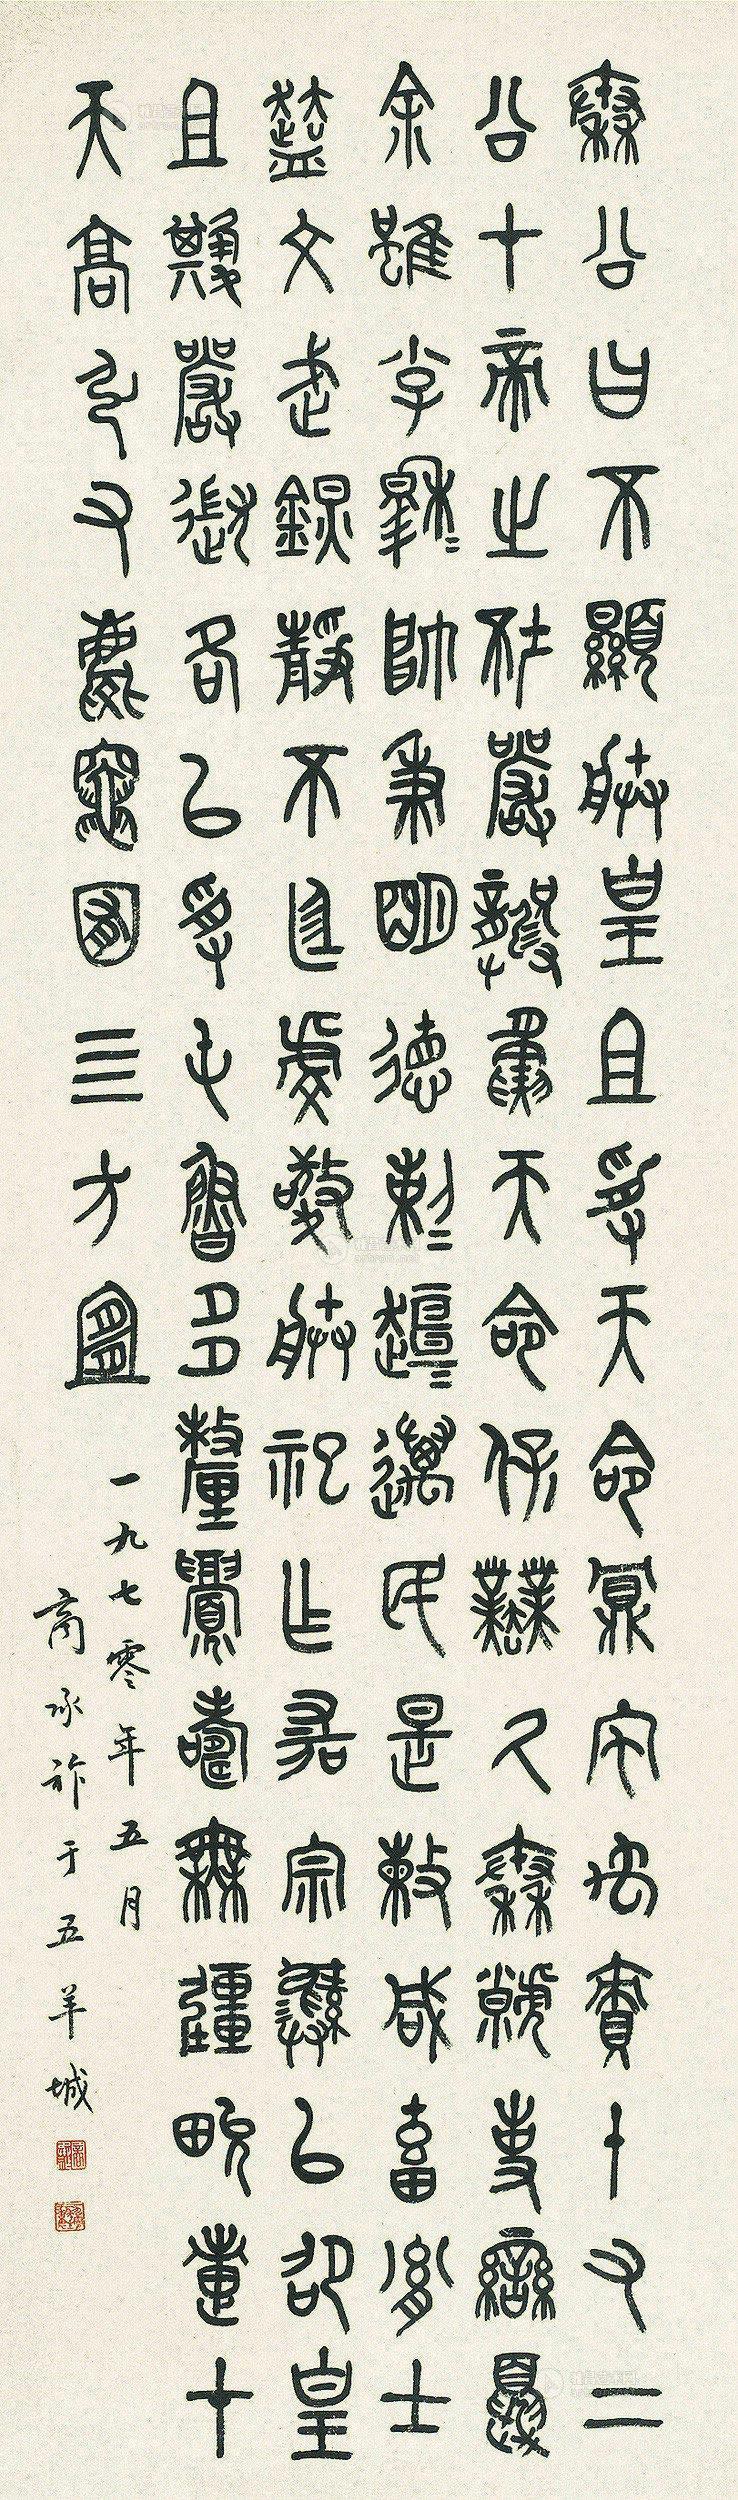 秦公曰不顯朕皇且受天命鼏宅禹責十又二
公才帝之坏嚴龏夤天命保業厥秦虩事蠻夏
余雖小子穆=帥秉明德剌=趄=邁民是敕咸畜胤士
文武鎮靜不廷虔敬朕祀乍宗彝以卲皇
且其嚴各以受屯魯多釐眉壽無疆畯疐才
天高弘又慶竈囿四方宜
一九七零年五月
商承祚于五羊城